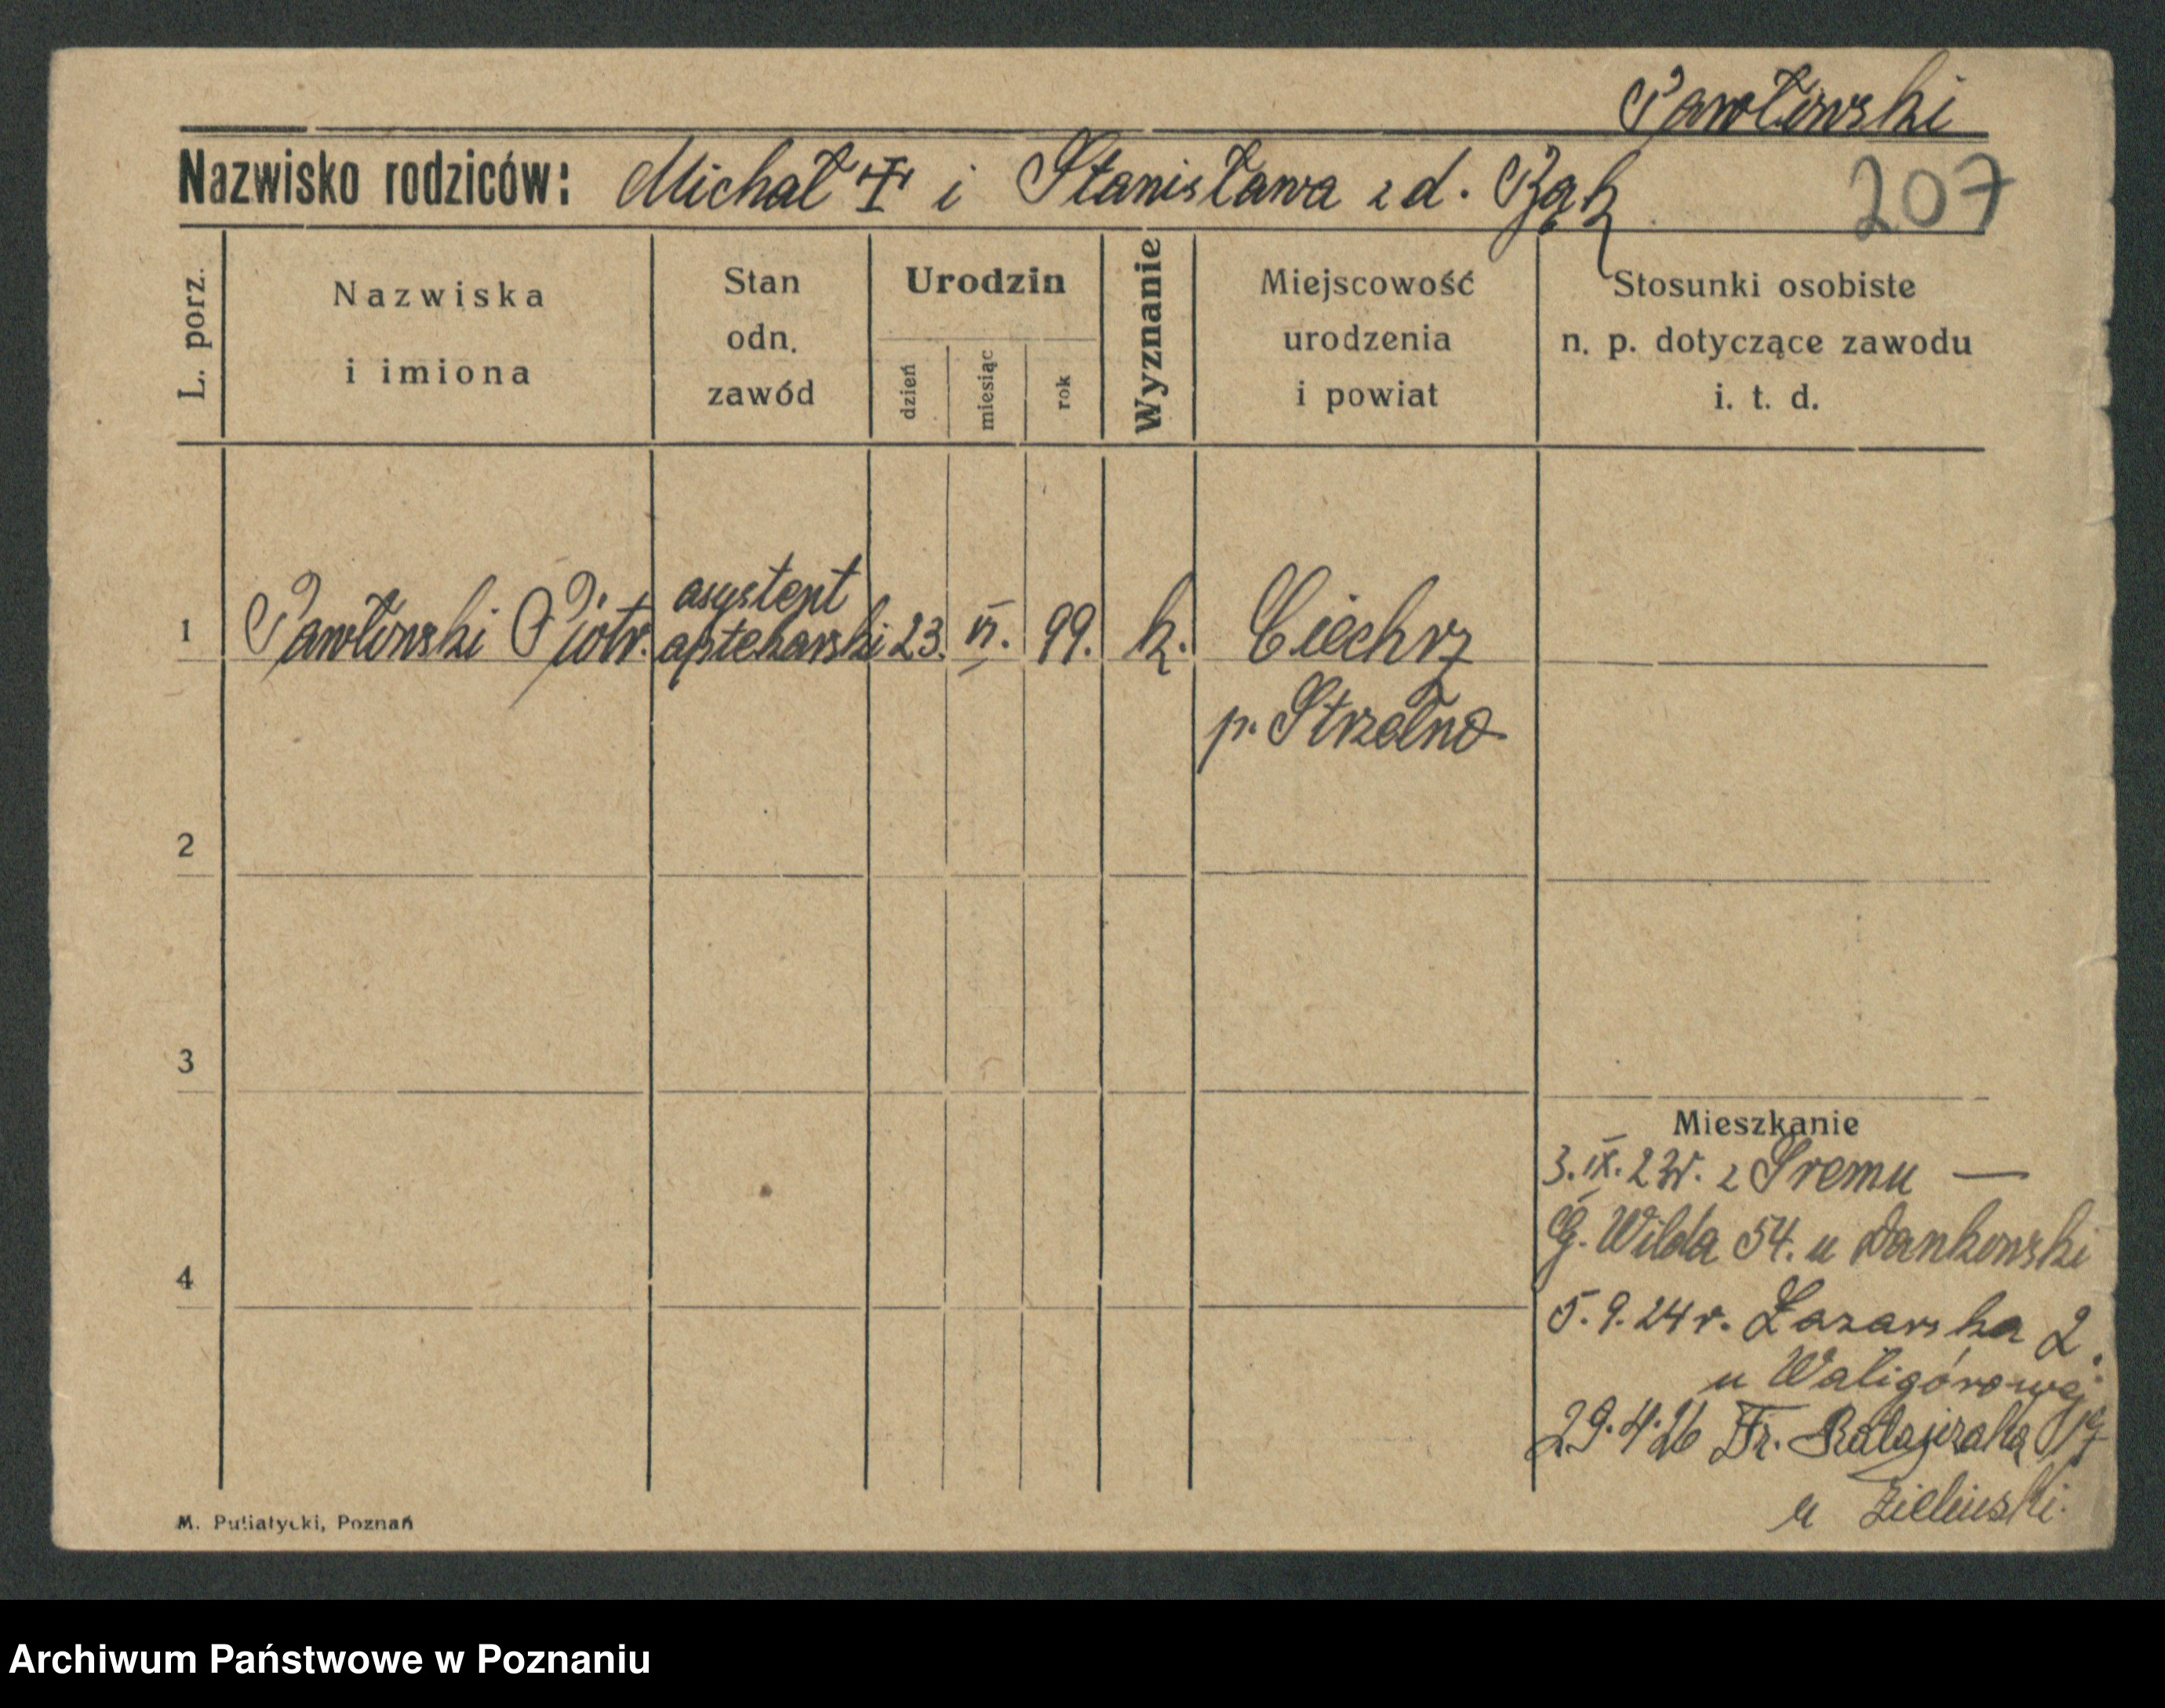 Pawłowski
Nazwisko rodziców: Michał ✝ i Stanisława z d. Bąk
207
L. porz.
Nazwiska
i imiona
Stan
odn.
zawód
Urodzin
dzień
miesiąc
rok
Wyznanie
Miejscowość
urodzenia
i powiat
Stosunki osobiste
n. p. dotyczące zawodu
i. t. d.
asystent
1 Pawłowski Piotr. aptekarski 23. VI. 99. k. Ciechrz
p. Strzelno
2
3
4
Mieszkanie
3. IX. 23r. z Śremu —
G. Wilda 54. u Dankowski
5. 9. 24 r. Łazarska 2.
u Waligórowej
29. 4. 26 Fr. Ratajczaka
u Zieliński.
M. Putiatycki, Poznań
Archiwum Państwowe w Poznaniu